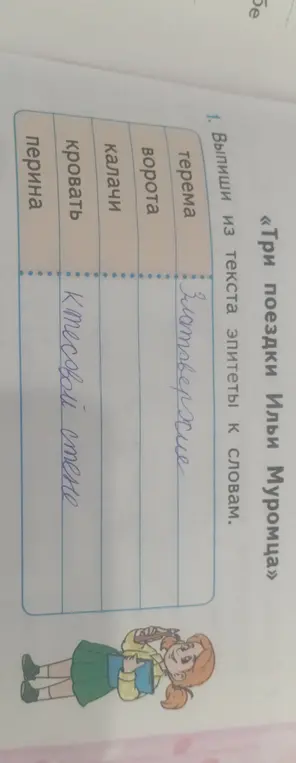 бе
«Три поездки Ильи Муромца»
1. Выпиши из текста эпитеты к словам.
терема Златоверхие
ворота
калачи
кровать к тесовой стене
перина